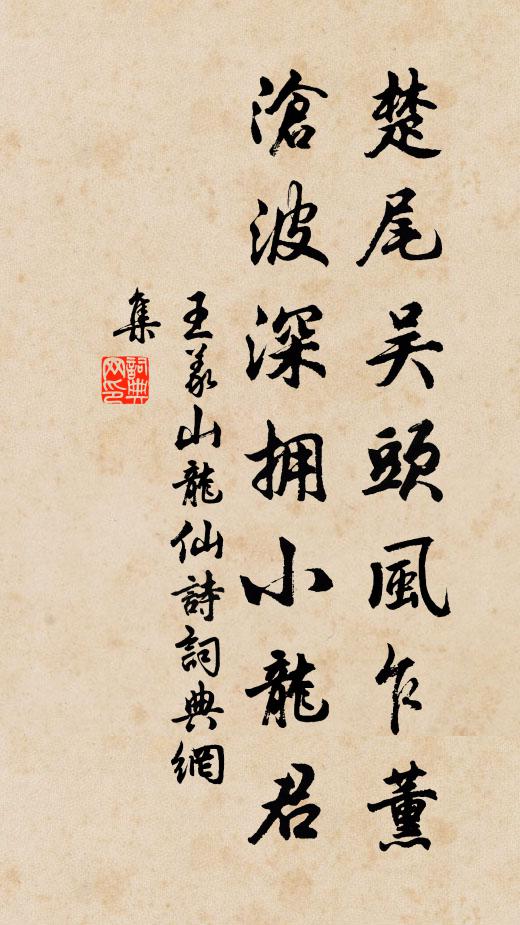 楚尾吴頭風乍薰
滄波深拥小龍君
王義山龍仙詩詞典網
集
詞典网印